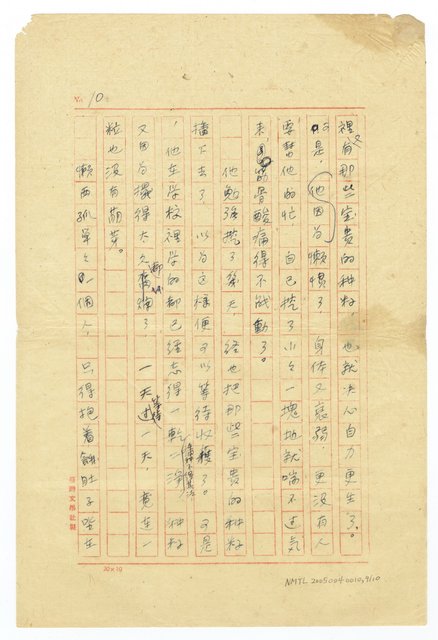 No. 10
裡有那些宝貴的种籽，也就决心自力更生了。
可是，他因为懶慣了，身体又衰弱，更沒有人
要幫他的忙，自己挖了小小一塊地就喘不过气
來，筋骨酸痛得不能動了。
他勉強挖了幾天，終也把那些宝貴的种籽
播下去了，以为这樣便可以等待收穫了。可是
，他在学校裡学的都已經忘得一乾二淨，种籽
又因为擺得太久都
了，一天过一天，竟連一
等待
粒也沒有萌芽。
懶西孤單之一個人，只得抱着餓肚子坐在
臺灣文學社製
20×10
NMTL 20050040010,9/10